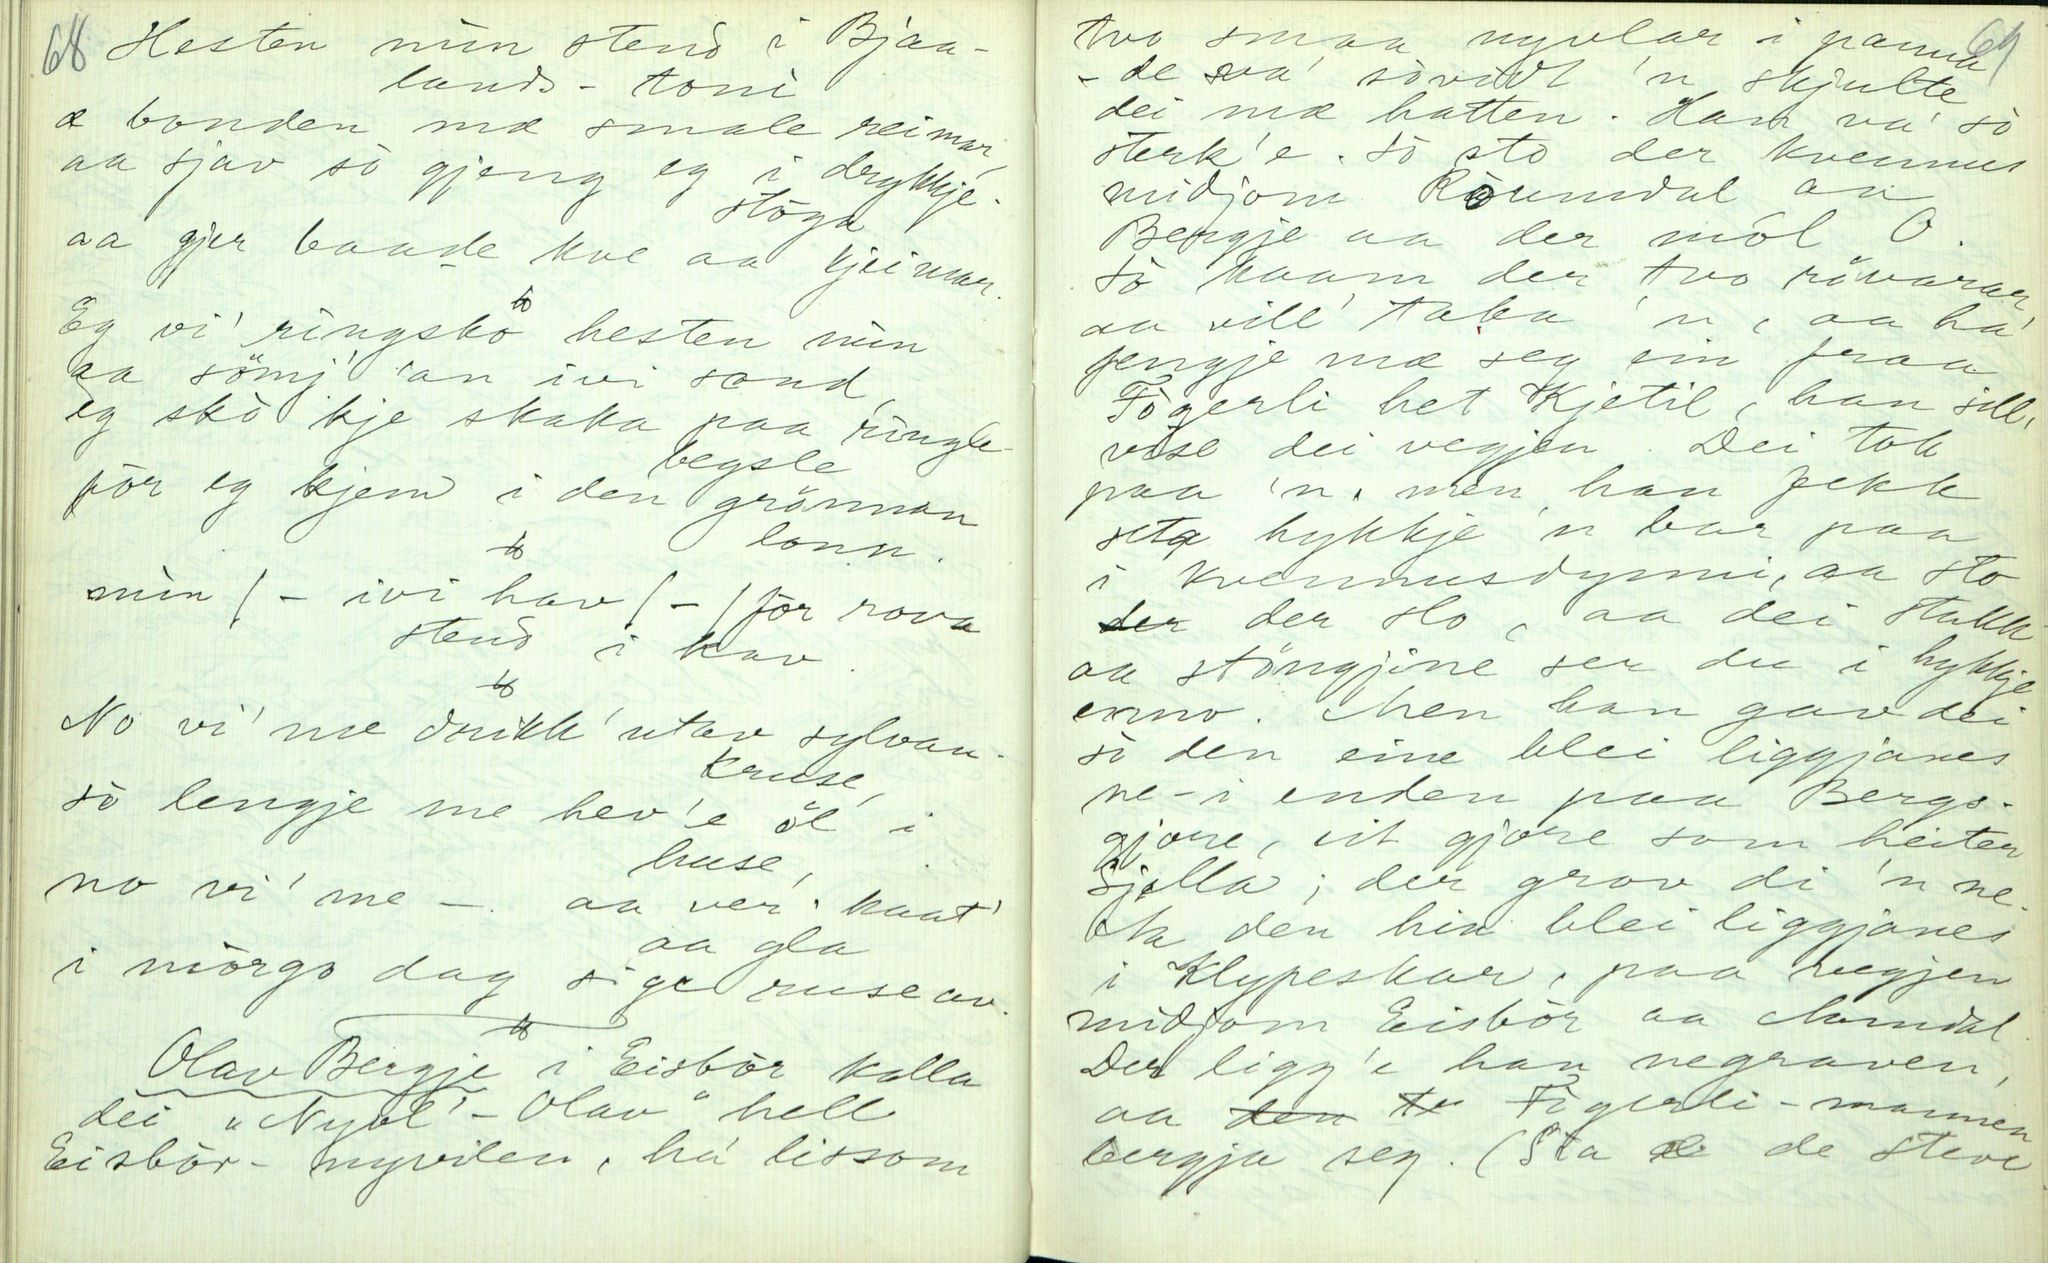 68
Hesten min stend i Bjaa-
lands-toni
æ bonden mæ smale reimar,
aa sjav sò gjeng eg i drykkje-
stòga
aa gjer baade kve aa kjeimar.
Eg vi' ringsko hesten min
aa sömj' 'an ivi sond,
eg skò kje skaka paa ringle-
begsle
fòr eg kjem i den grönnan
lonn.
min / - ivi hav / - / fòr rova
stend i kav.
No vi' me drikk' utav sylvan-
kruse,
sò lengje me hev'e öl i
huse,
no vi' me - aa ver' kaat'
aa gla
i mòrgo dag sige ruse av.
Olav Bergje i Eisbòr kalla
dei "Nyvl'-Olav" hell
Eisbòr-nyvilen, ha' lissom
69
tvo smaa nyvlar i panna
- de va' sòvidt 'n skjulte
dei mæ hatten. Han va' sò
sterk'e. Sò sto der kvennus
midjom Roumdal aa
Bergje aa der mòl O.
Sò kaam der tvo rövarar
aa vill' taka 'n, aa ha'
fengje mæ seg ein fraa
Fògerli het Kjetil, han sill'
vise dei vegjen. Dei tok
paa 'n, men han fekk
seta hykkje 'n bar paa
i kvennusdynni, aa sto
der slo, aa dei stakk
aa stöngjine ser du i hykkje
enno. Men han gav dei
sò den eine blei liggjanes
ne-i enden paa Bergs-
gjore, eit gjore som heiter
Sjølla; der grov di 'n ne.
Aa den hin blei liggjanes
i Klypeskar, paa vegjen
midjom Eisbòr aa Aamdal.
Der ligg'e han negraven,
aa Fògerli-mannen
bergja seg. (Sta de steve